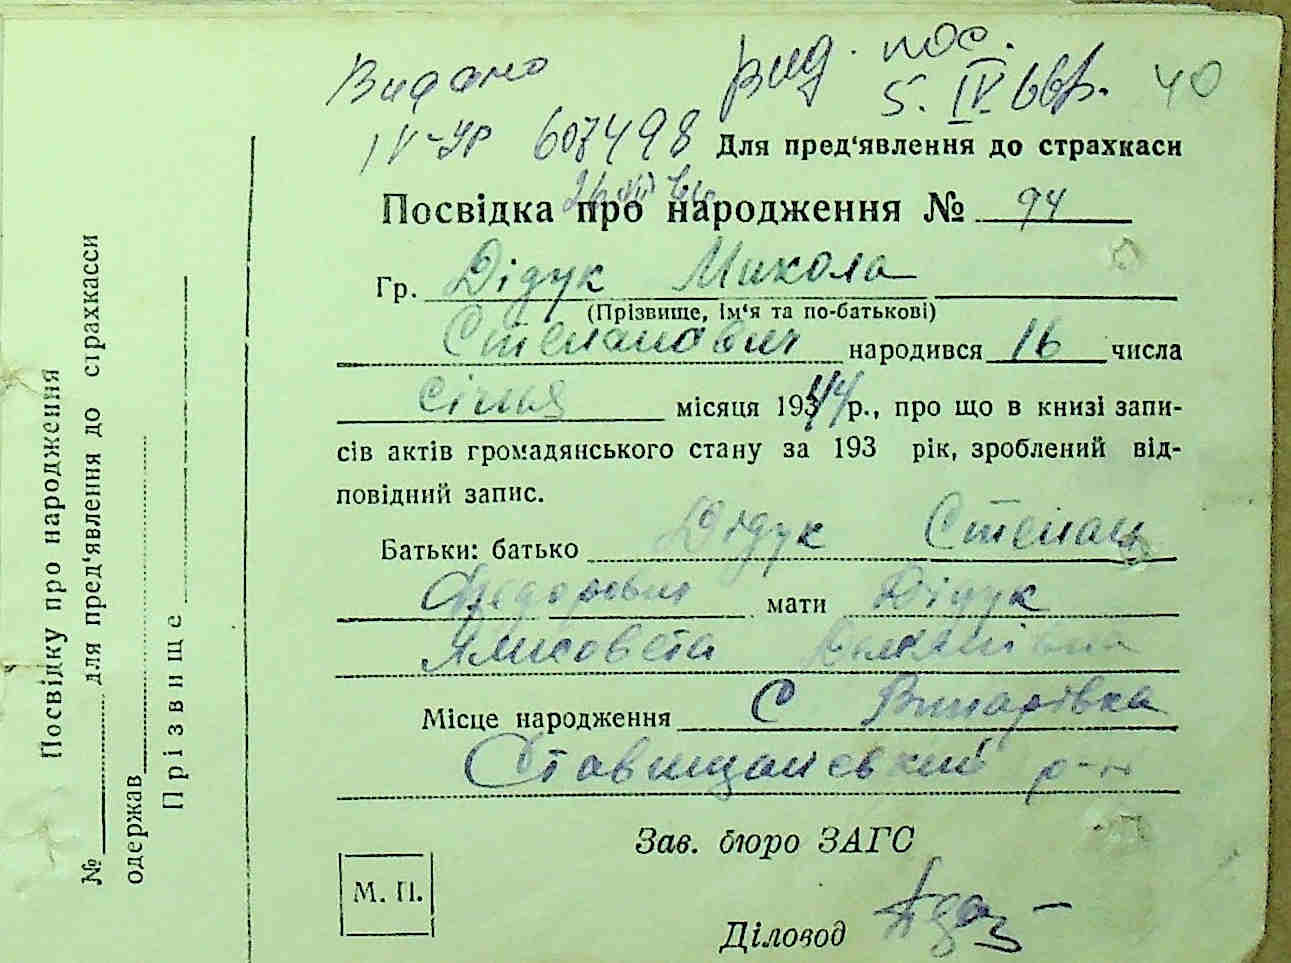 Видано вид. пос.
5. IV. 66р. 40
IV-УР 607498 Для пред'явлення до страхкаси
Посвідка про народження № 94
Гр. Дідук Микола
(Прізвище, ім'я та по-батькові)
Степанович народився 16 числа
січня місяця 1944 р., про що в книзі запи-
сів актів громадянського стану за 193 рік, зроблений від-
повідний запис.
Батьки: батько Дідук Степан
Федорович мати Дідук
Ялисовета
Місце народження С Винарівка
Ставищанський р-н
Зав. бюро ЗАГС
М. П.
Діловод
Посвідку про народження
№ для пред'явлення до страхкасси
одержав
Прізвище